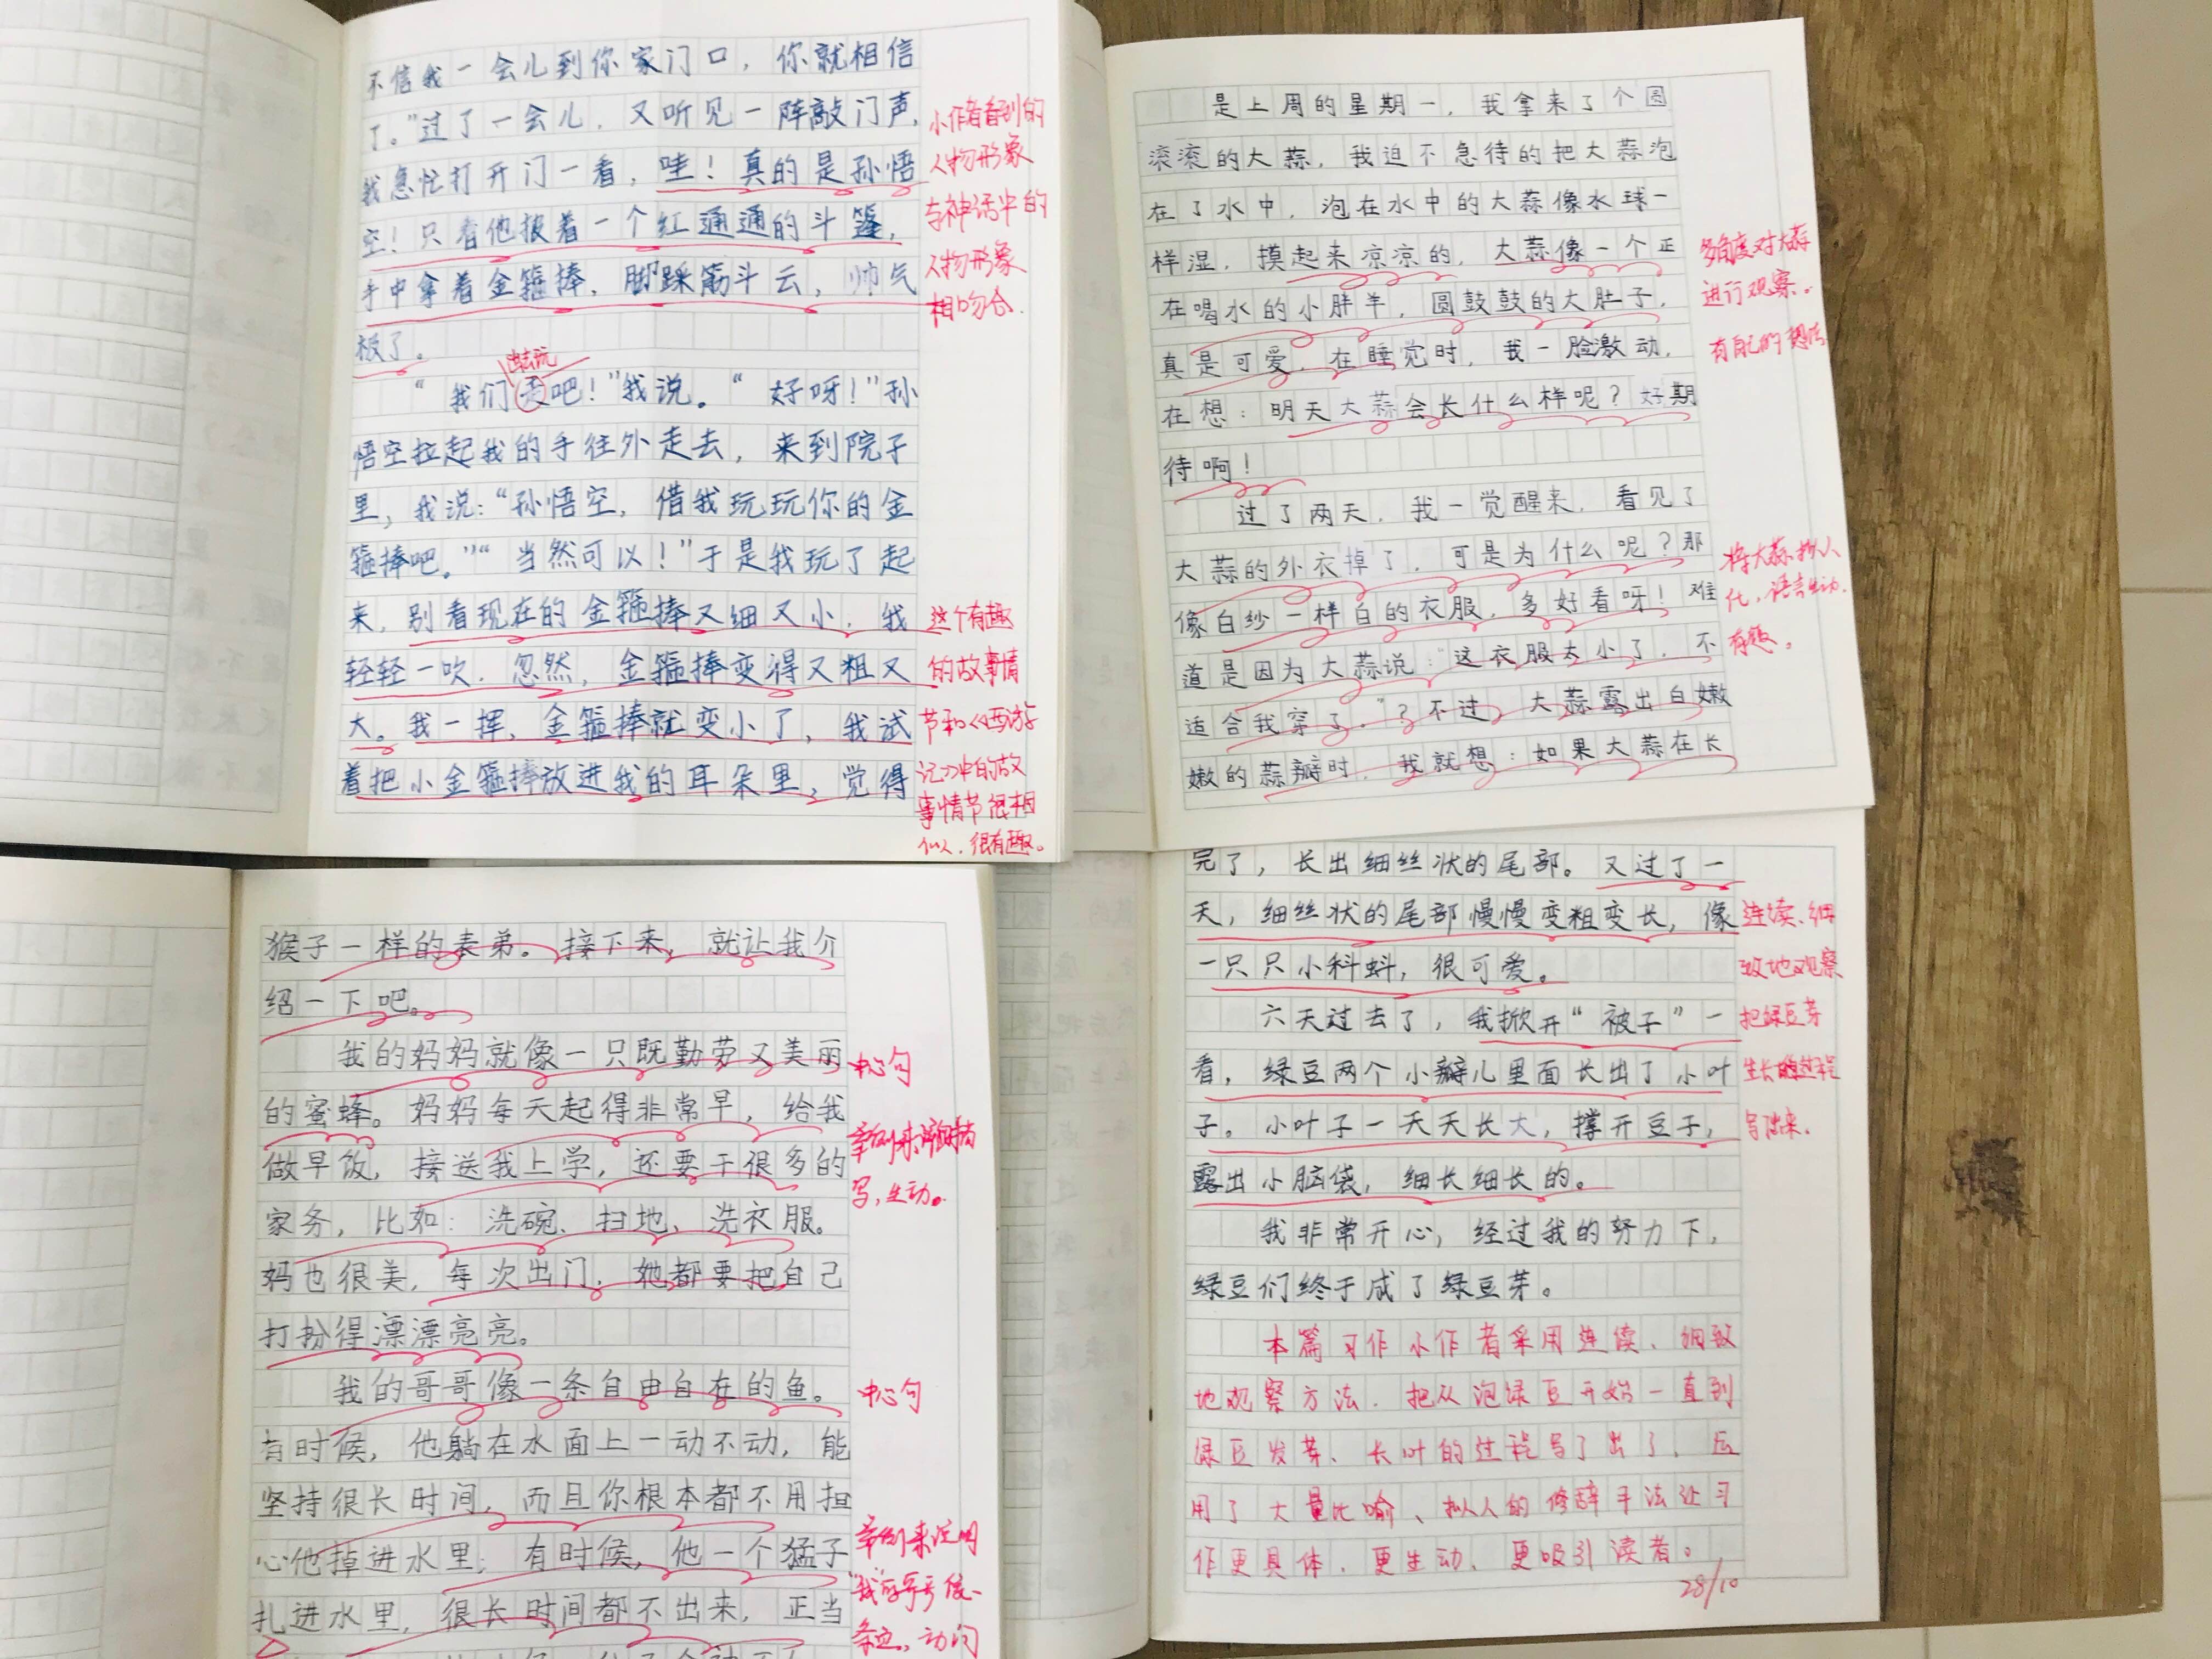 不信我一会儿到你家门口，你就相信
了。”过了一会儿，又听见一阵敲门声，
我急忙打开门一看，哇！真的是孙悟
空！只看他披着一个红通通的斗篷，
手中拿着金箍棒，脚踩筋斗云，帅气
极了。
出去玩
“我们去吧！”我说。“好呀！”孙
悟空拉起我的手往外走去，来到院子
里，我说：“孙悟空，借我玩玩你的金
箍棒吧。”“当然可以！”于是我玩了起
来，别看现在的金箍棒又细又小，我
轻轻一吹，忽然，金箍棒变得又粗又
大。我一挥，金箍棒就变小了，我试
着把小金箍棒放进我的耳朵里，觉得
小作者看到的
人物形象
与神话中的
人物形象
相吻合.
这个有趣
的故事情
节和《西游
记》中的故
事情节很相
似，很有趣。
是上周的星期一，我拿来了个圆
滚滚的大蒜，我迫不急待的把大蒜泡
在了水中，泡在水中的大蒜像水球一
样湿，摸起来凉凉的，大蒜像一个正
在喝水的小胖羊，圆鼓鼓的大肚子，
真是可爱，在睡觉时，我一脸激动，
在想：明天大蒜会长什么样呢？好期
待啊！
过了两天，我一觉醒来，看见了
大蒜的外衣掉了，可是为什么呢？那
像白纱一样白的衣服，多好看呀！难
道是因为大蒜说：“这衣服太小了，不
适合我穿了。”？不过，大蒜露出白嫩
嫩的蒜瓣时，我就想：如果大蒜在长
多角度对大蒜
进行观察。
有自己的想法
将大蒜拟人
化，语言生动.
有趣。
猴子一样的表弟。接下来，就让我介
绍一下吧。
我的妈妈就像一只既勤劳又美丽
的蜜蜂。妈妈每天起得非常早，给我
做早饭，接送我上学，还要干很多的
家务，比如：洗碗、扫地、洗衣服。
妈也很美，每次出门，她都要把自己
打扮得漂漂亮亮。
我的哥哥像一条自由自在的鱼。
有时候，他躺在水面上一动不动，能
坚持很长时间，而且你根本都不用担
心他掉进水里；有时候，他一个猛子
扎进水里，很长时间都不出来，正当
中心句
写，生动。
中心句
举例来说明
完了，长出细丝状的尾部。又过了一
天，细丝状的尾部慢慢变粗变长，像
一只只小科蚪，很可爱。
六天过去了，我掀开“被子”一
看，绿豆两个小瓣儿里面长出了小叶
子。小叶子一天天长大，撑开豆子，
露出小脑袋，细长细长的。
我非常开心，经过我的努力下，
绿豆们终于成了绿豆芽。
连续、细
致地观察
把绿豆芽
生长的过程
写出来.
本篇习作小作者采用连续、细致
地观察方法，把从泡绿豆开始一直到
绿豆发芽、长叶的过程写了出了，运
用了大量比喻、拟人的修辞手法让习
作更具体、更生动、更吸引读者。
28/10